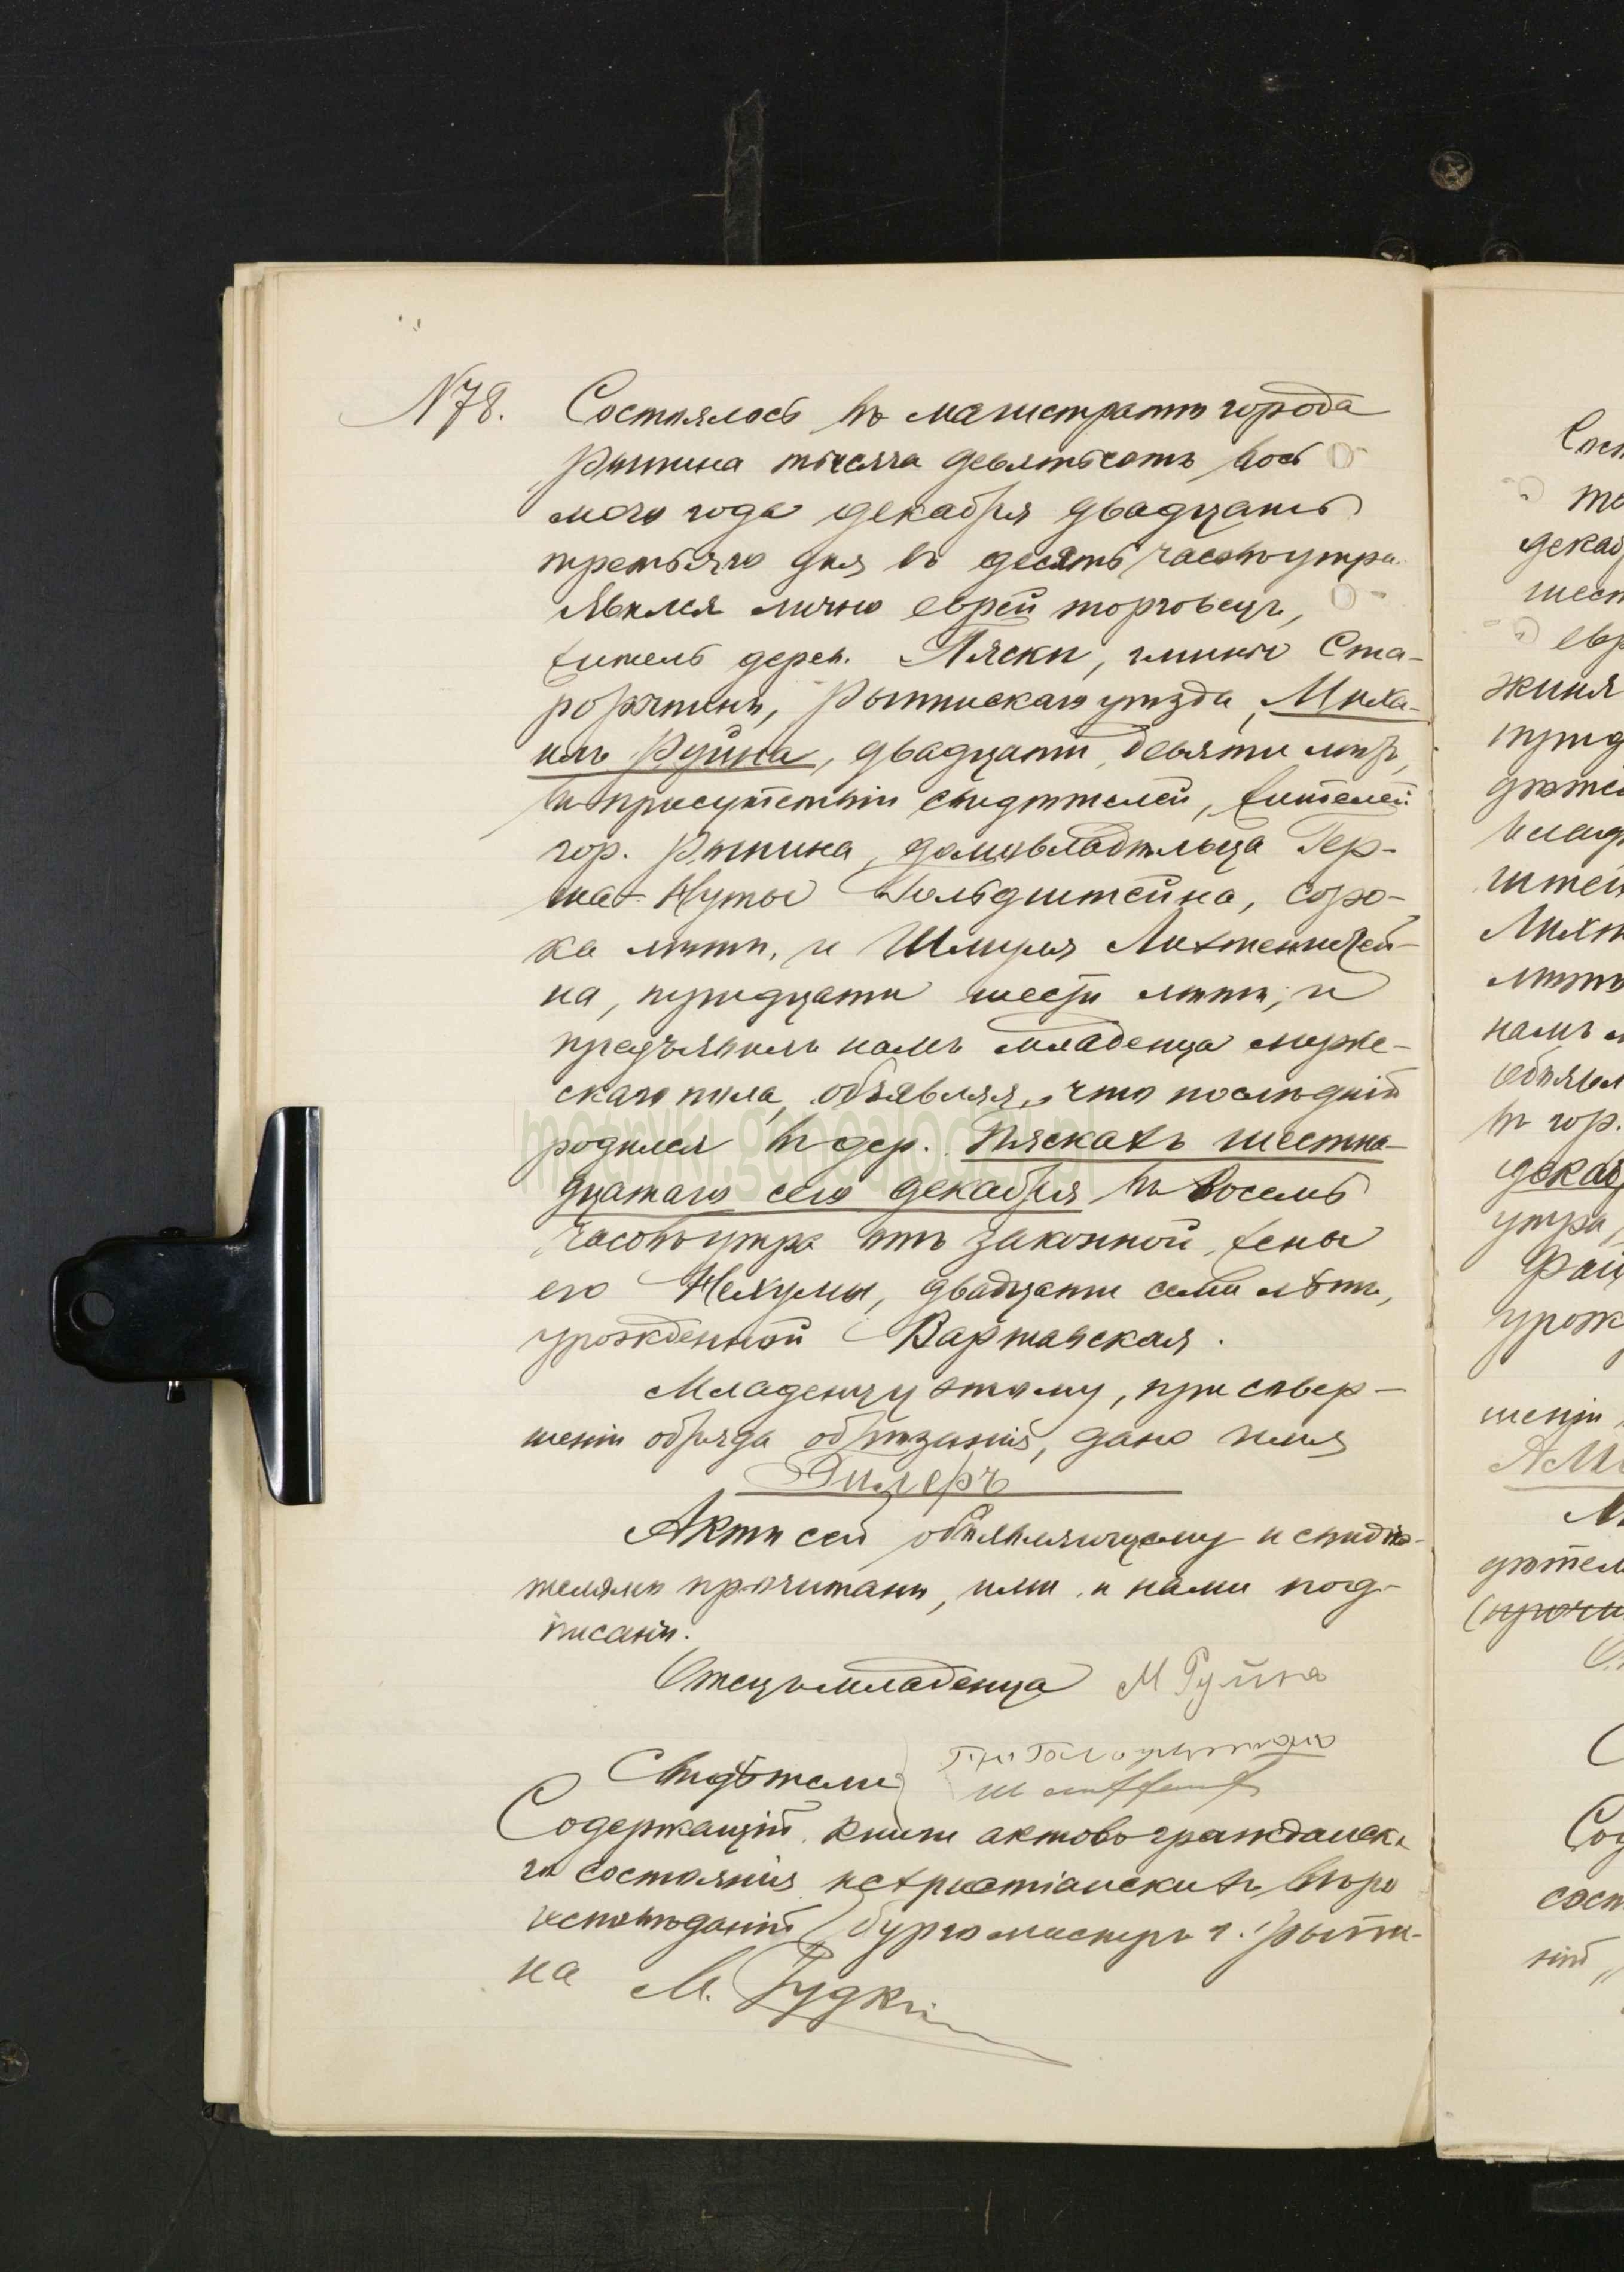 N78. Состоялось въ магистратѣ города
Рыпина тысяча девятьсотъ вось
мого года декабря двадцать
третьяго дня въ десять часовъ утра.
Явился лично еврей торговецъ,
житель дерев. Пяски, гмины Ста-
рорыпинъ, Рыпинскаго уѣзда, Миха-
илъ Руйна, двадцати девяти лѣтъ,
въ присутствіи свидѣтелей, жителей
гор. Рыпина, домовладѣльца Гер-
ша-Нуты Гольдштейна, соро-
ка лѣтъ, и Шмуля Лихтенштей-
на, тридцати шести лѣтъ, и
предъявилъ намъ младенца муже-
скаго пола, объявляя, что послѣдній
родился въ дер. Пяскахъ шестна-
дцатаго сего декабря въ восемь
часовъ утра отъ законной жены
его Нехумы, двадцати семи лѣтъ,
урожденной Варшавская.
Младенцу этому, при совер-
шеніи обряда обрѣзанія, дано имя
Актъ сей объявляющему и свидѣ-
телямъ прочитанъ, ими и нами под-
писанъ.
Отецъ младенца М Руйна
Свидѣтели
Содержащій книги актовъ гражданска
го состоянія нехристіанскихъ вѣро
исповѣданій бургомистръ г. Рыпи-
на М.
metryki.genealodzy.pl